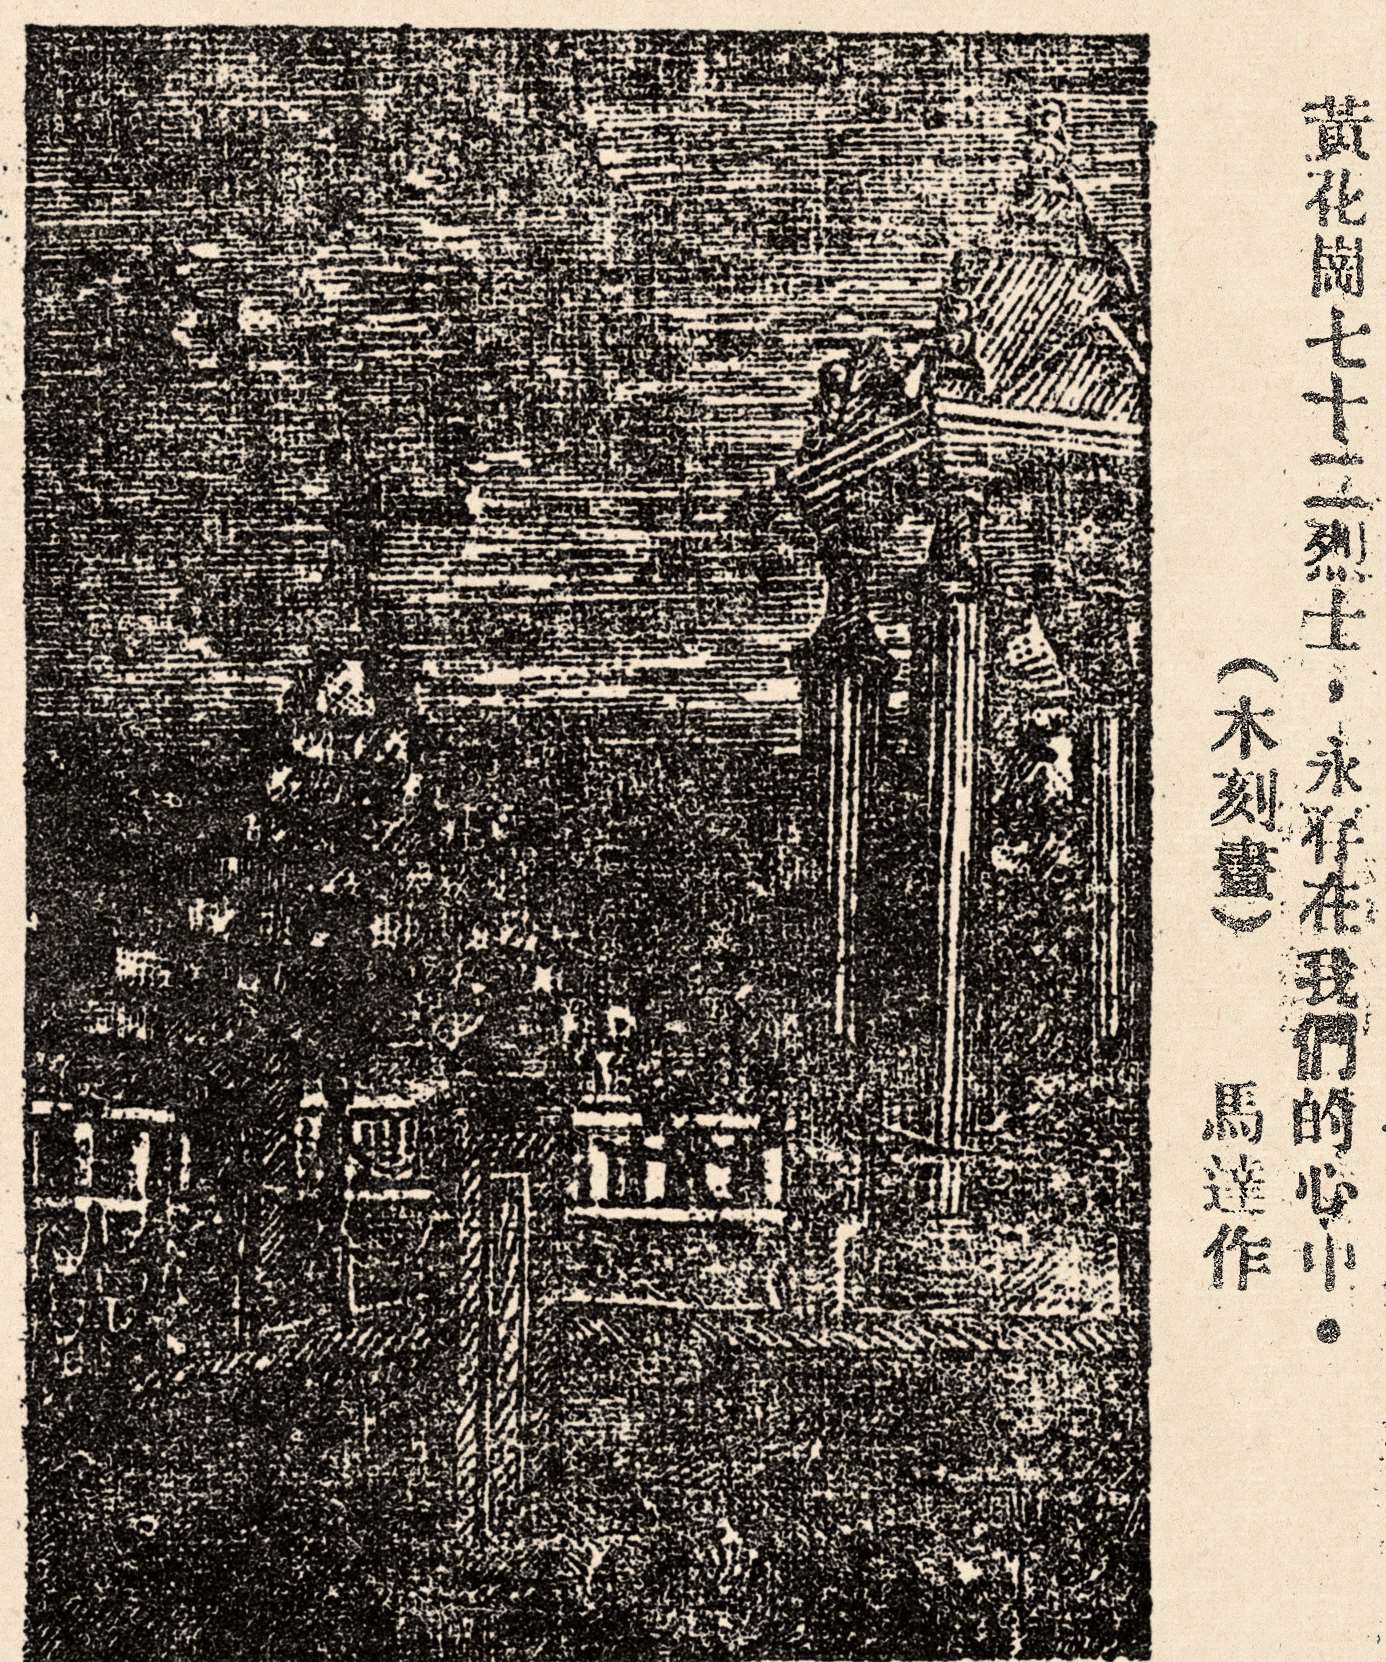 黃花崗七十二烈士，永存在我們的心中。
（木刻畫）　馬達作